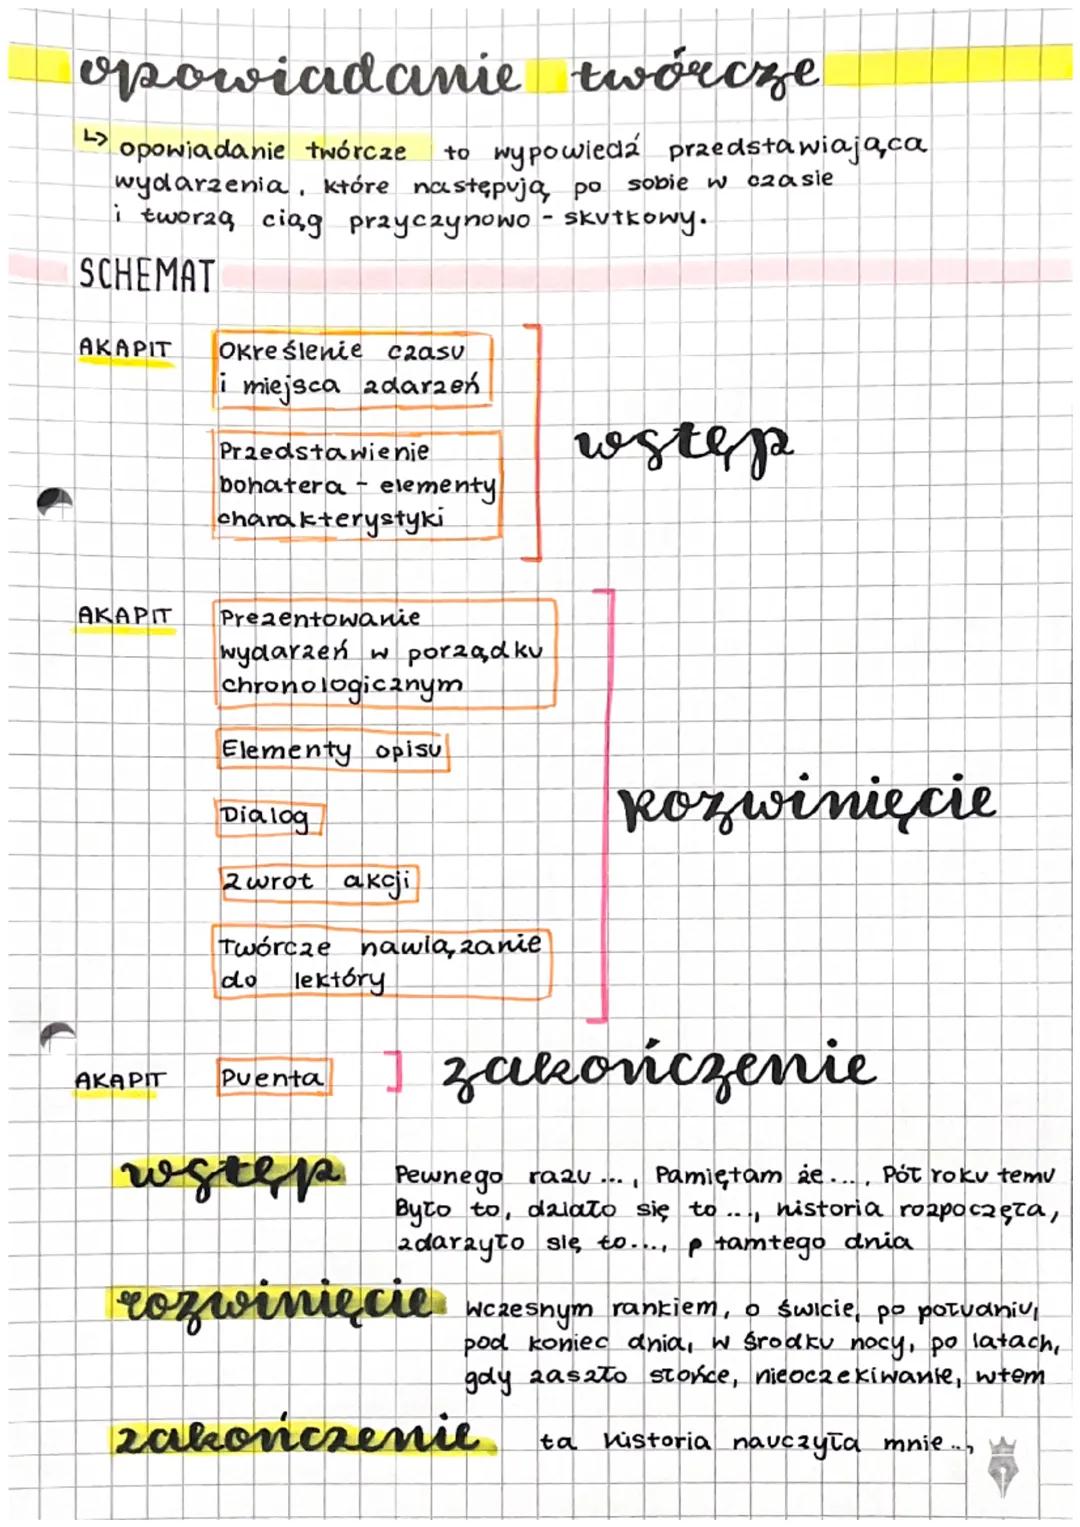 opowiadanie twórcze
↳ opowiadanie twórcze to wypowiedź przedstawiająca
wydarzenia, które następują po sobie w czasie
i tworzą ciąg przyczynowo - skutkowy.
SCHEMAT
AKAPIT
Określenie czasu
i miejsca zdarzeń
Przedstawienie
bohatera - elementy
charakterystyki
wstęp
AKAPIT
Prezentowanie
wydarzeń w porządku
chronologicznym
Elementy opisu
Dialog
Zwrot akcji
Twórcze nawiązanie
do lektóry
rozwinięcie
AKAPIT
Puenta
zakończenie
wstęp
Pewnego razu ..., Pamiętam że ..., Pół roku temu
Było to, działo się to ..., historia rozpoczęła,
zdarzyło się to..., p tamtego dnia
rozwinięcie
wczesnym rankiem, o świcie, po południu,
pod koniec dnia, w środku nocy, po latach,
gdy zaszło słońce, nieoczekiwanie, wtem
zakończenie
ta historia nauczyła mnie ..,